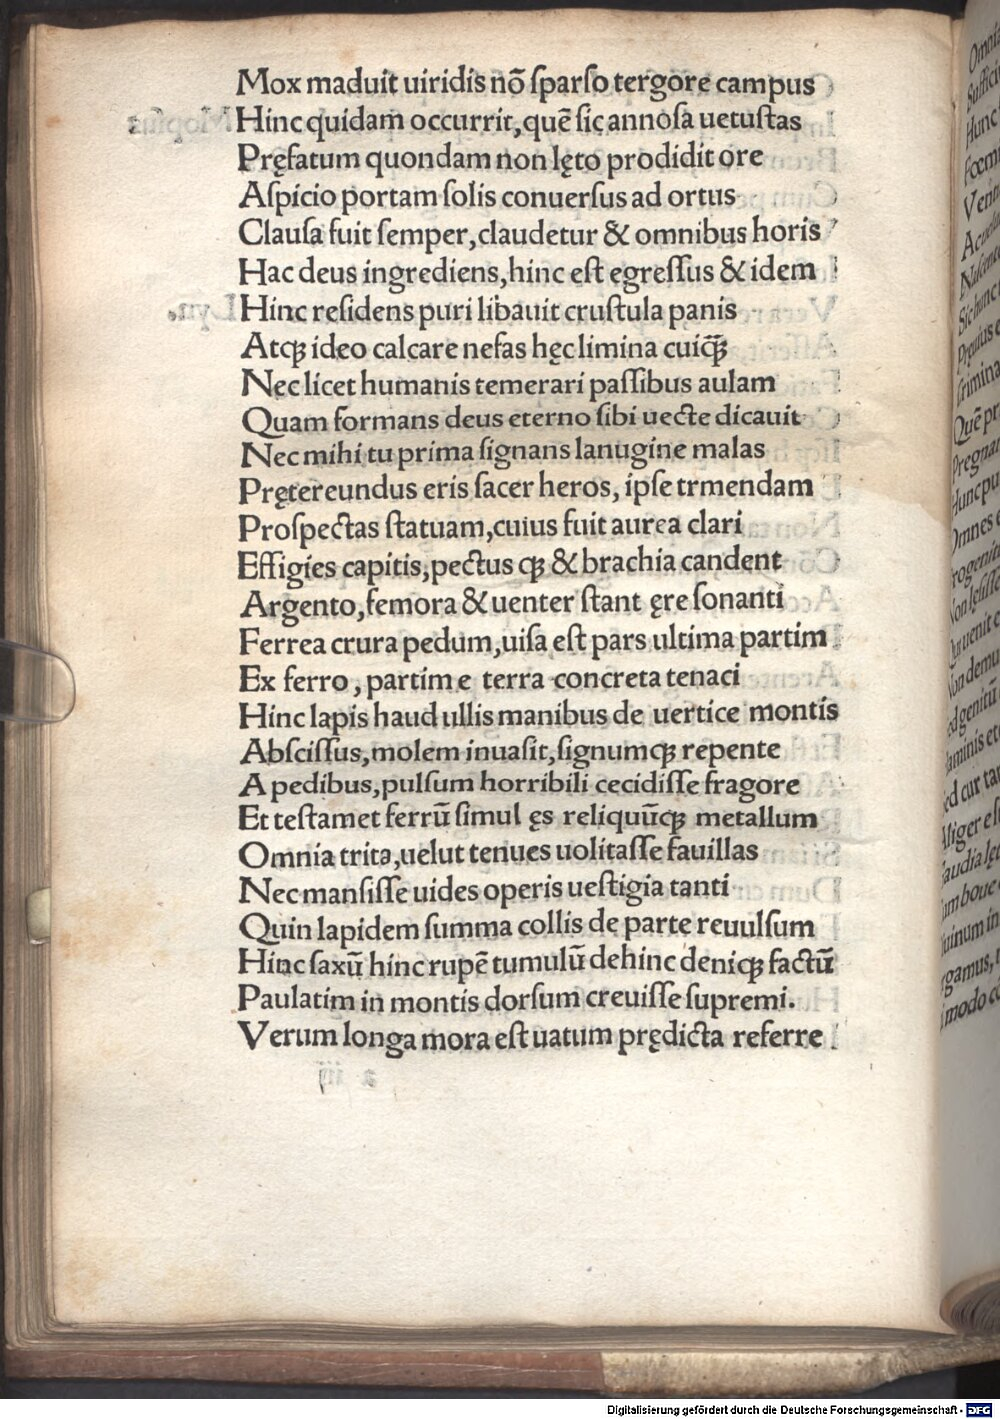 Mox maduit uiridis nō ſparſo tergore campus
Hinc quidam occurrit, quē ſic annoſa uetuſtas
Pręfatum quondam non lęto prodidit ore
Aſpicio portam ſolis conuerſus ad ortus
Clauſa fuit ſemper, claudetur & omnibus horis
Hac deus ingrediens, hinc eſt egreſſus & idem
Hinc reſidens puri libauit cruſtula panis
Atqꝫ ideo calcare nefas hęc limina cuiqꝫ̄
Nec licet humanis temerari paſſibus aulam
Quam formans deus eterno ſibi uecte dicauit
Nec mihi tu prima ſignans lanugine malas
Prętereundus eris ſacer heros, ipſe trmendam
Proſpectas ſtatuam, cuius fuit aurea clari
Effigies capitis, pectus qꝫ & brachia candent
Argento, femora & uenter ſtant ęre ſonanti
Ferrea crura pedum, uiſa eſt pars ultima partim
Ex ferro, partim e terra concreta tenaci
Hinc lapis haud ullis manibus de uertice montis
Abſciſſus, molem inuaſit, ſignumqꝫ repente
A pedibus, pulſum horribili cecidiſſe fragore
Et teſtamet ferrū ſimul ęs reliquūcqꝫ metallum
Omnia trita, uelut tenues uolitaſſe fauillas
Nec manſiſſe uides operis ueſtigia tanti
Quin lapidem ſumma collis de parte reuulſum
Hinc ſaxū hinc rupē tumulū dehinc deniqꝫ factū
Paulatim in montis dorſum creuiſſe ſupremi.
Verum longa mora eſt uatum prędicta referre
Digitalisierung gefördert durch die Deutsche Forschungsgemeinschaft - DFG